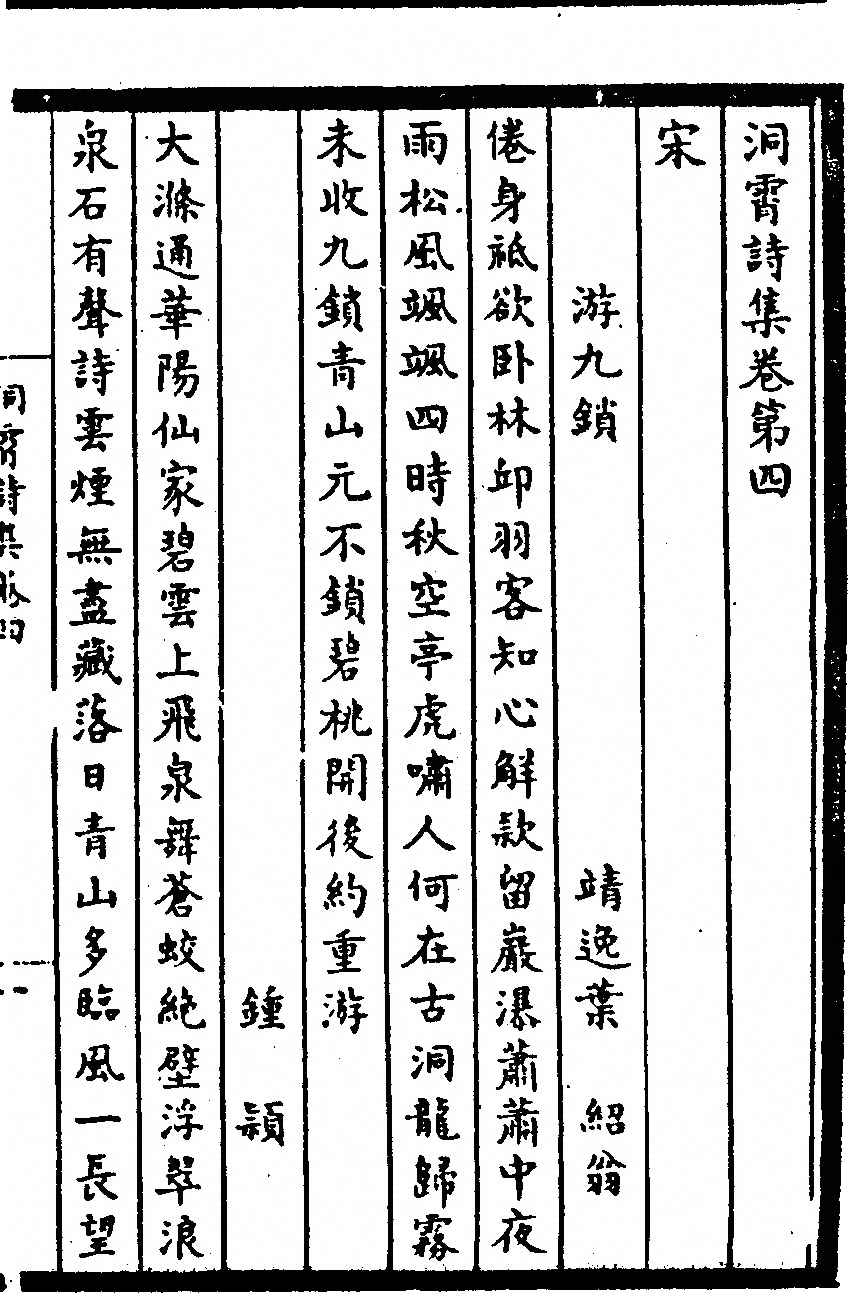 洞霄詩集卷第四
宋
游九鎖 靖逸葉 紹翁
倦身祗欲卧林邱羽客知心解款留巖瀑蕭蕭中夜
雨松風颯颯四時秋空亭虎嘯人何在古洞龍歸霧
未收九鎖青山元不鎖碧桃開後約重游
鍾 頴
大滌通華陽仙家碧雲上飛泉舞蒼蛟絶壁浮翠浪
泉石有聲詩雲煙無盡藏落日青山多臨風一長望
洞霄詩集